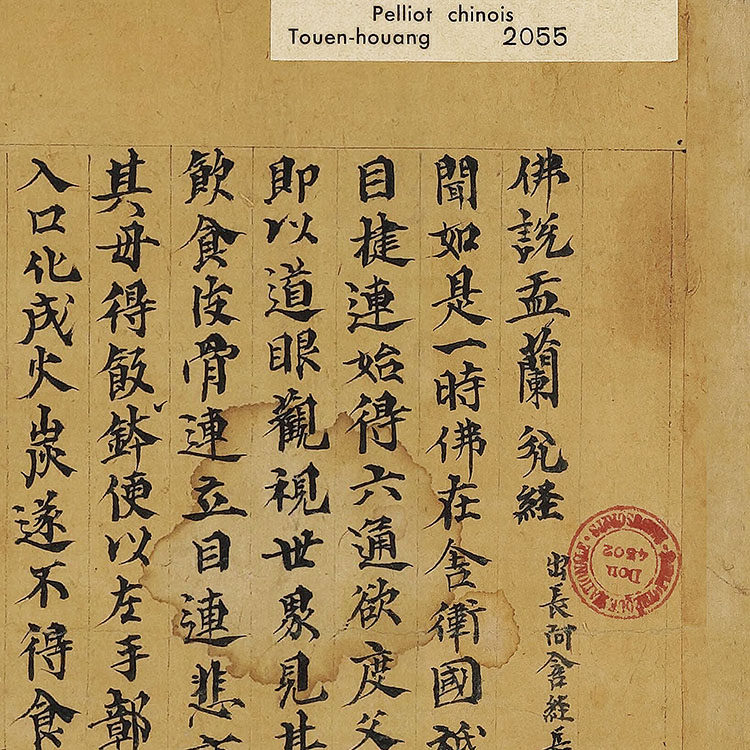 Pelliot chinois
Touen-houang 2055
佛說盂蘭瓫経
出長阿含経
聞如是一時佛在舍衛國祇
目揵連始得六通欲度父
即以道眼觀視世界見其
飲食皮骨連立目連悲
其母得飯鉢便以左手鄣
入口化成火炭遂不得食
DON
4502